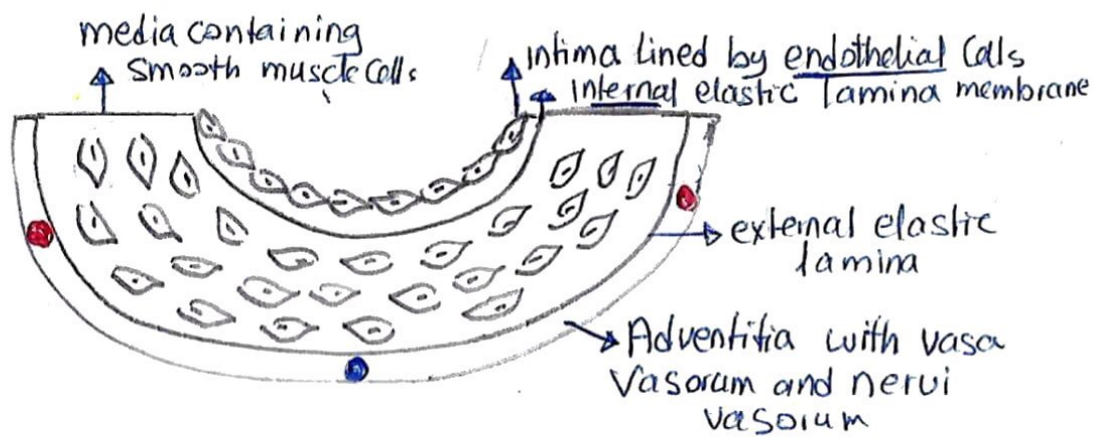 media containing
smooth muscle cells
intima lined by endothelial Cells
internal elastic lamina membrane
external elastic
lamina
Adventitia with vasa
Vasorum and nervi
vasorum